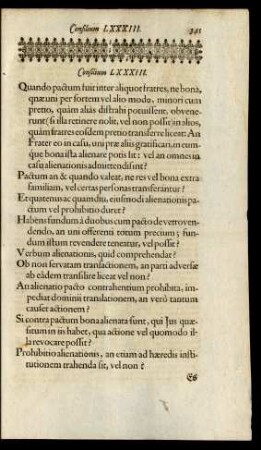 Consilium LXXXIII. 341
Consilium LXXXIII.
Quando pactum fuit inter aliquot fratres, ne bona,
quæ uni per sortem vel alio modo, minori cum
pretio, quàm aliàs distrahi potuissent, obvene-
runt (si illa retinere nolit, vel non possit) in alios,
quàm fratres eosdem pretio transferre liceat: An
Frater eo in casu, uni præ aliis gratificari, in eum-
que bona ista alienare potis sit: vel an omnes in
casu alienationis admittendi sint?
Pactum an & quando valeat, ne res vel bona extra
familiam, vel certas personas transferantur?
Et quatenus ac quamdiu, ejusmodi alienationis pa-
ctum vel prohibitio duret?
Habens fundum à duobus cum pacto de retroven-
dendo, an uni offerenti totum precium; fun-
dum istum revendere teneatur, vel possit?
Verbum alienationis, quid comprehendat?
Ob non servatam transactionem, an parti adversæ
ab eâdem transilire liceat vel non?
An alienatio pacto contrahentium prohibita, im-
pediat dominii translationem, an verò tantum
causet actionem?
Si contra pactum bona alienata sunt, qui Jus quæ-
situm in iis habet, qua actione vel quomodo il-
la revocare possit?
Prohibitio alienationis, an etiam ad hæredis insti-
tutionem trahenda sit, vel non?
Et